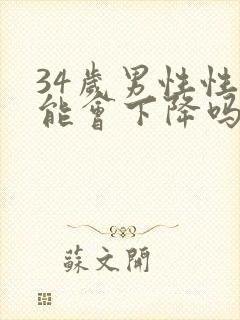 34歲男性性
能會下降嗎
蘇文開